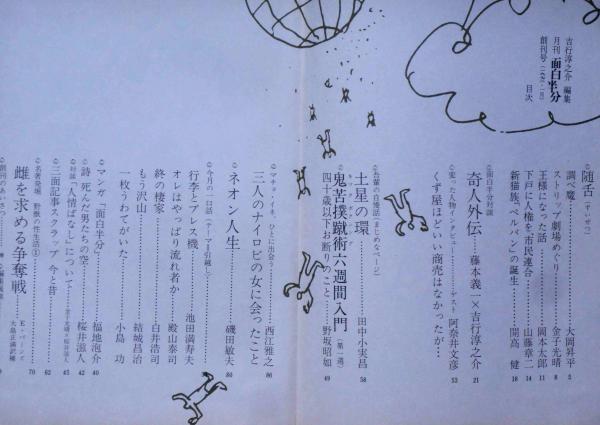 吉行淳之介 編集
月刊 面白半分
創刊号(1972・1月)
目次
随舌(ずいぜつ)
調べ魔……大岡昇平 5
ストリップ劇場めぐり……金子光晴 8
王様になった話……岡本太郎 11
下戸に人権を・市民連合……山藤章二 14
新猫族、ベルバンの誕生……開高 健 18
面白半分対談
奇人外伝……藤本義一×吉行淳之介 21
変った人物インタビュー――ゲスト 阿奈井文彦 53
くず屋ほどいい商売はなかったが…
吾輩の自慢話(まじめなページ)
土星の環……田中小実昌 58
鬼苦撲蹴術六週間入門(第一週)
四十歳以下お断りのこと……野坂昭如 49
マチョ・イネ、ひょに出会う
三人のナイロビの女に会ったこと……西江雅之 86
ネオン人生……磯田敏夫 80
今月の一口話(テーマ=引越し)
行李とプレス機……池田満寿夫
オレはやっぱり流れ者か……殿山泰司
終の棲家……白井浩司
もう沢山……結城昌治
一枚うわてがいた……小島 功
マンガ「面白半分」……福地泡介 40
詩 死んだ男たちの空……桜井滋人 42
対談「人情ばなし」について 45
三面記事スクラップ 今と昔 62
名著発掘 野獣の性生活①
雌を求める争奪戦 70
創刊のあいさつ